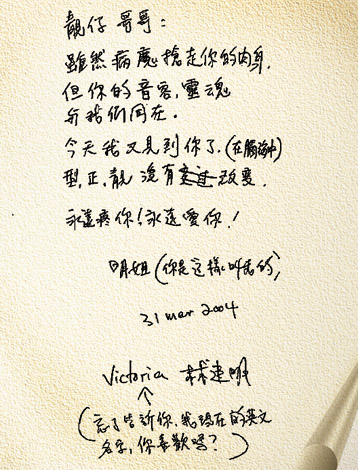 靚仔哥哥:
雖然病魔搶走你的肉身,
但你的音容,靈魂
與我們同在.
今天我又見到你了.(在腦海中)
型,正,靚 沒有 改變.
永遠疼你!永遠愛你!
明姐(你是這樣叫我的)
31 mar 2004
Victoria 林建明
↑
(忘了告訴你,我現在的英文
名字,你喜歡嗎?)